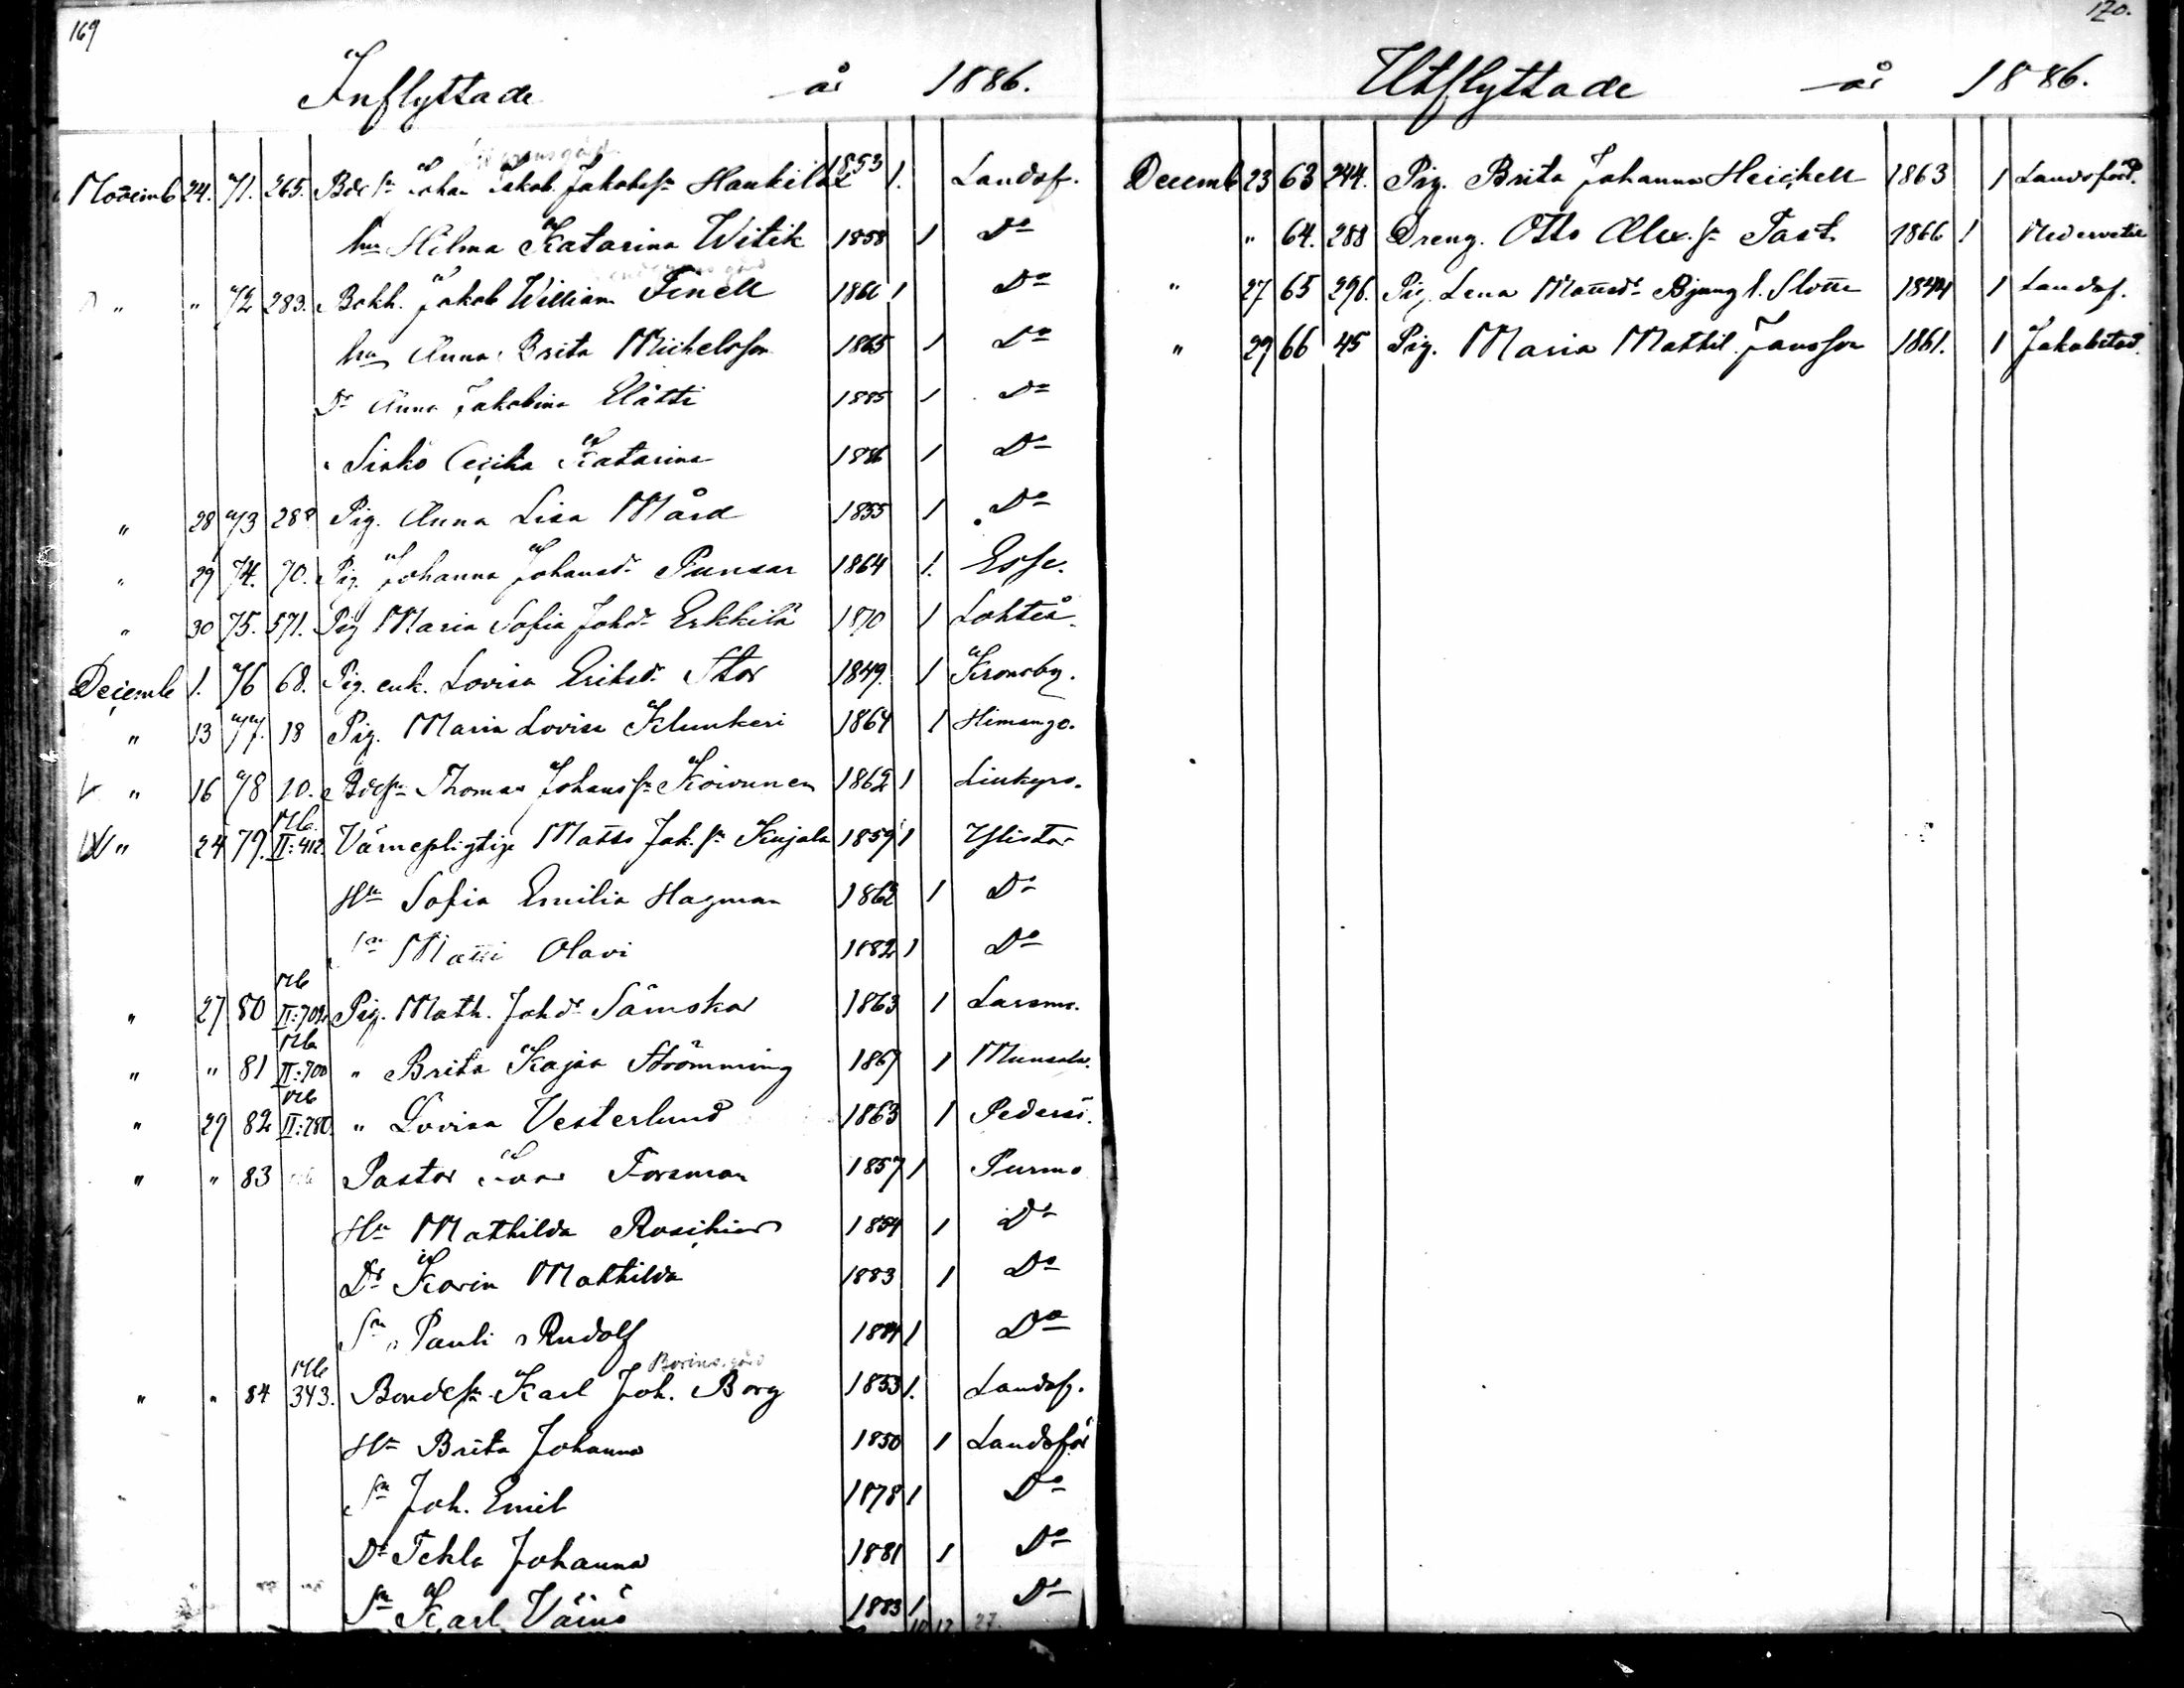 169
Inflyttade år 1886.
Novemb 24. 71. 265. Bdes. Johan Jakob Jakobss. Hankilax 1853 1. Landsf.
hu Hilma Katarina Witik 1858 1 Do
" " 72 283. Bokh. Jakob William Finell 1861 1 Do
hu Anna Brita Michelsson 1865 1 Do
Dr Anna Jakobina 1885 1 Do
Cecilia Katarina 1886 1 Do
" 28 73 288 Pig. Anna Lisa Mård 1855 1 Do
" 29 74. 70. Pig. Johanna Johansdr Punsar 1864 1. Esse.
" 30 75. 571. Pig Maria Sofia Johdr Erkkilä 1870 1 Lohteå.
Decemb 1. 76 68. Pig. enk. Lovisa Eriksdr Stor 1849. 1 Kronoby.
" 13 77. 18 Pig. Maria Lovisa Klemkeri 1864 1 Himango.
" 16 78 10. Bdes. Thomas Johanss. Koivunen 1862 1
" 24 79. Mb. II:412. Värnepligtige Matts Jak. s. Kujala 1859 1 Ylistar
Hu Sofia Emilia Hagman 1862 1 Do
Sn Matti Olavi 1882 1 Do
" 27 80 Mb II:702. Pig. Math. Johdr Sämskar 1863 1 Larsmo.
" " 81 Mb II:700 " Brita Kajsa Strömming 1867 1 Munsala.
" 29 82 Mb II:780. " Lovisa Vesterlund 1863 1 Pedersö.
" " 83 Pastor Ivar Forsman 1857 1 Purmo
Hu Mathilda Roschier 1854 1 Do
Dr Karin Mathilda 1883 1 Do
Sn Pauli Rudolf 1884 1 Do
Borinsgård
" " 84 Mb 343. Bondes. Karl Joh. Borg 1853 1. Landsf.
Hu Brita Johanna 1850 1 Landsför
Sn Joh. Emil 1878 1 Do
Dr Tekla Johanna 1881 1 Do
Sn Karl Väinö 1883 1 Do
27.
170.
Utflyttade år 1886.
Decemb 23 63 244. Pig. Brita Johanna Heichell 1863 1 Landsförs.
" 64. 288 Dreng. Otto Alex. s. Past 1866 1 Nedervetil
" 27 65 296. Pig. Lena Mattsdr Bjong l. Slotte 1844 1 Landsf.
" 29 66 45 Pig. Maria Mathil. Jansson 1861. 1 Jakobstad.